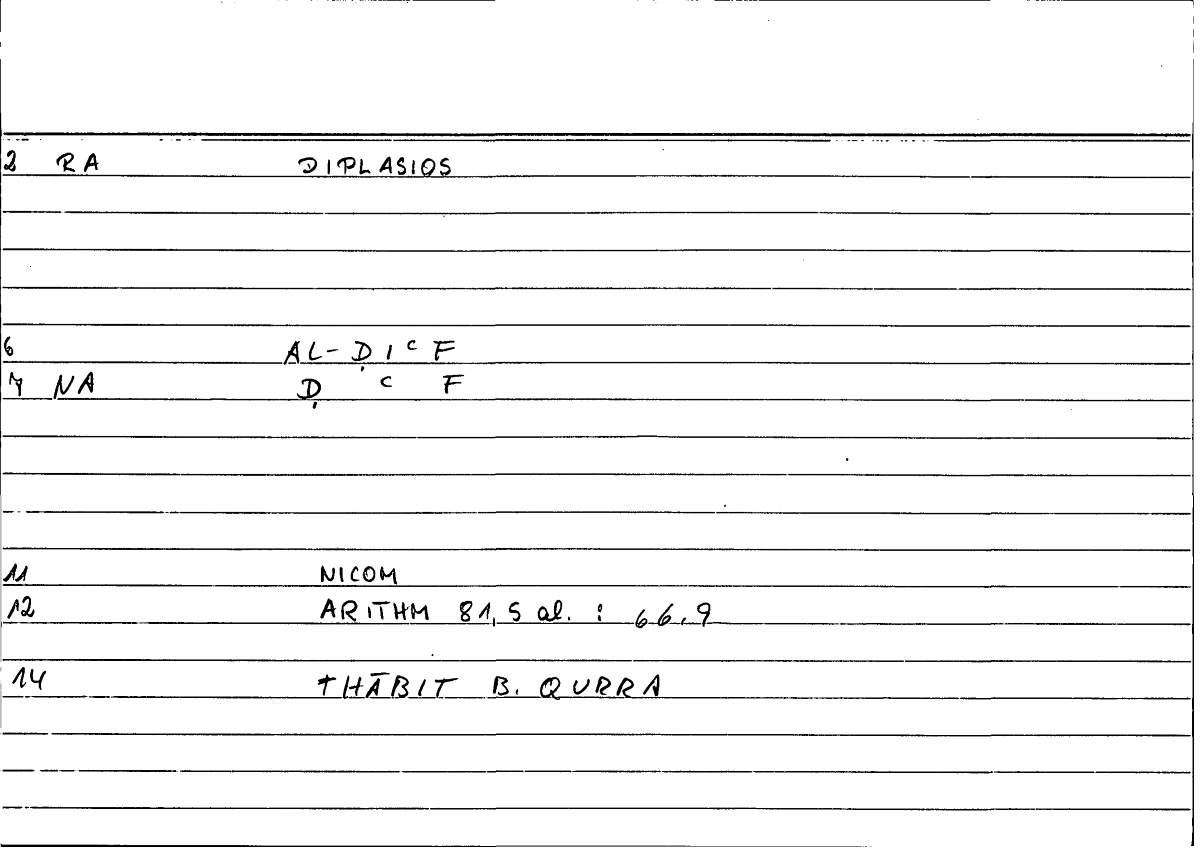 2 RA DIPLASIOS
6 AL-ḌIᶜF
7 NA Ḍ ᶜ F
11 NICOM
12 ARITHM 81,5 al. : 66,9
14 THĀBIT B. QURRA